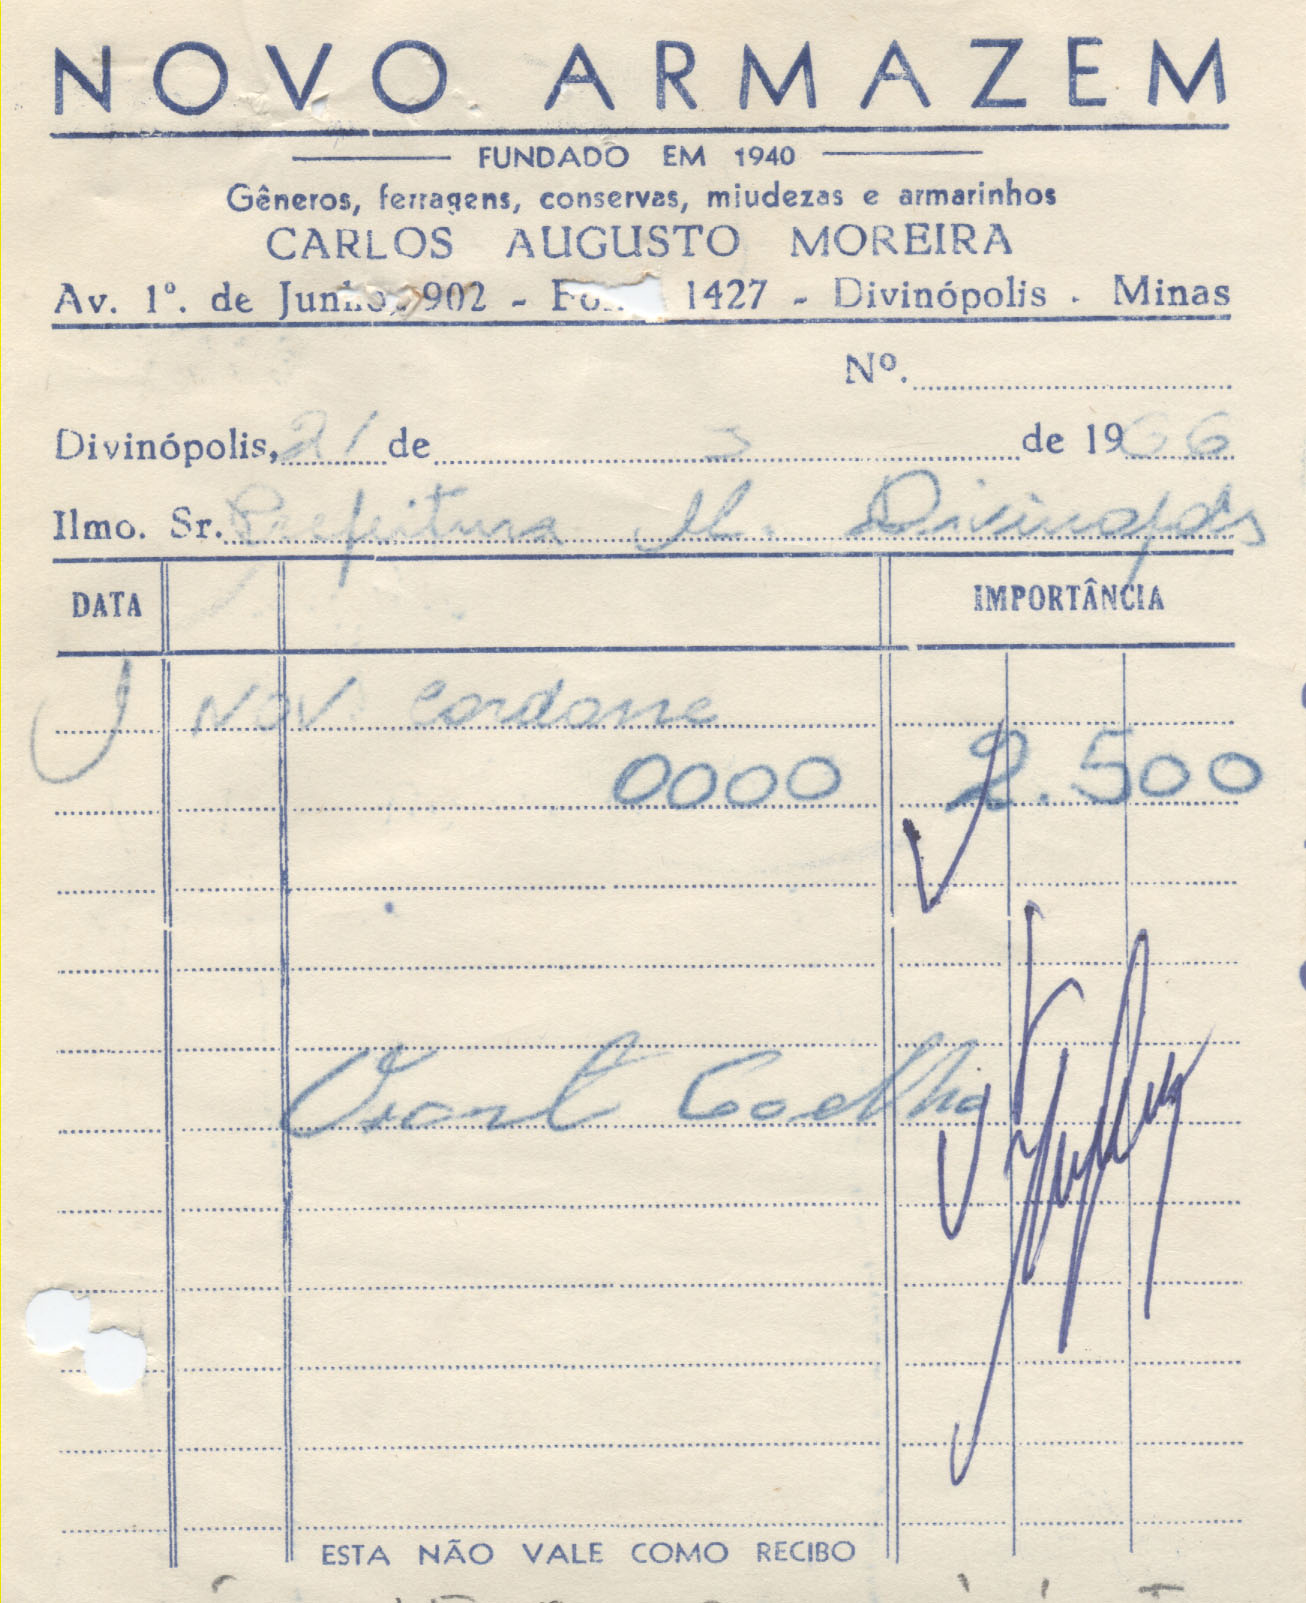 NOVO ARMAZEM
FUNDADO EM 1940
Gêneros, ferragens, conservas, miudezas e armarinhos
CARLOS AUGUSTO MOREIRA
Av. 1º. de Junho, 902 - Fone 1427 - Divinópolis - Minas
Nº.
Divinópolis, 21 de 3 de 1966
Ilmo. Sr. Prefeitura M. Divinopolis
DATA IMPORTÂNCIA
0000 2.500
Coelho
ESTA NÃO VALE COMO RECIBO